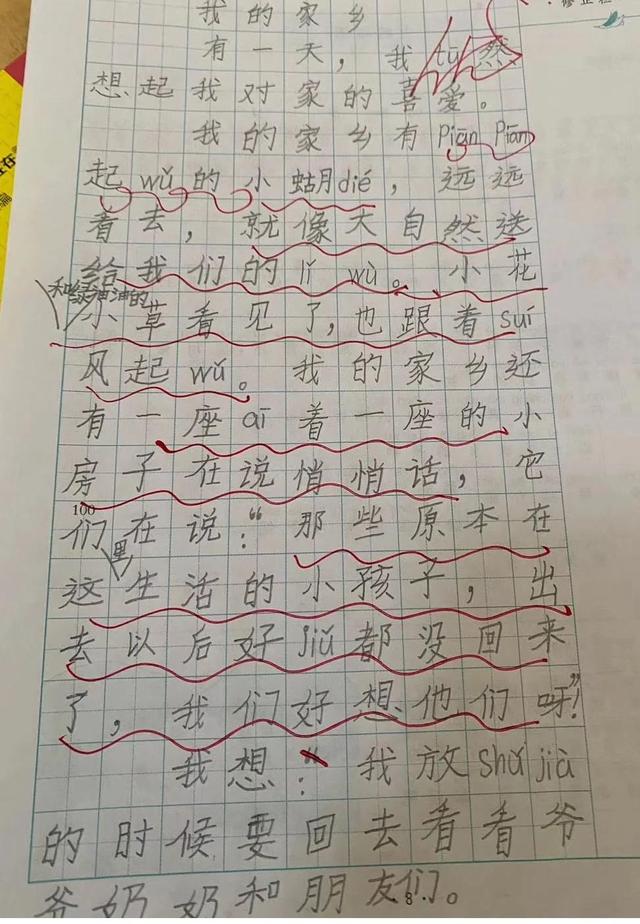 我的家乡
有一天，我tū然
想起我对家的喜爱。
我的家乡有Piān Piān
起wǔ的小蛄月dié，远远
看去，就像大自然送
给我们的lǐ wù。小花
和绿油油的
小草看见了，也跟着suí
风起wǔ。我的家乡还
有一座āi着一座的小
房子在说悄悄话，它
100
们在说：“那些原本在
这里生活的小孩子，出
去以后好jiǔ都没回来
了，我们好想他们呀！”
我想：“我放shǔ jià
的时候要回去看看爷
爷奶奶和朋友们。
8